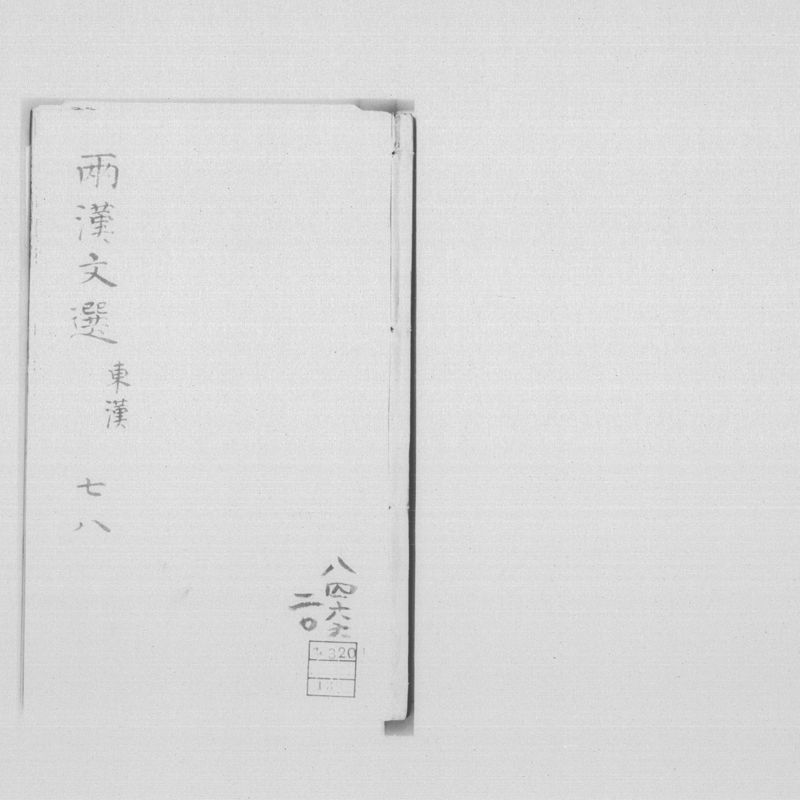 兩漢文選
東漢
七八
八四六七
二〇
320